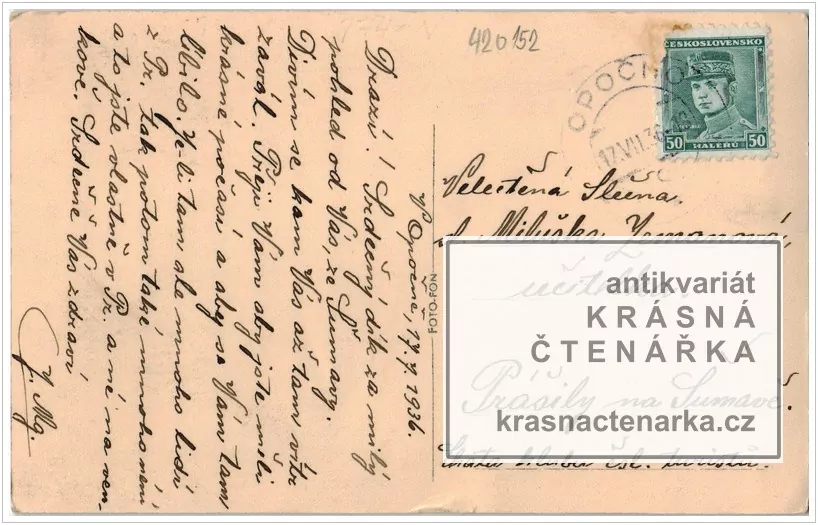 420152
ČESKOSLOVENSKO
50 HALÉŘŮ 50
OPOČNO
17.VII.36
V Opočně, 17.7.1936.
Drazí! Srdečný dík za milý
pohled od Vás ze Šumavy.
Divím se kam Vás až tam vítr
zavál. Přeji Vám aby jste měli
krásné počasí a aby se Vám tam
líbilo. Je-li tam ale mnoho lidí
z Pr. tak potom také mnoho není
a to jste vlastně v Pr. a né na ven-
kově. Srdečně Vás zdraví
FOTO-FON
Velectěná Slečna
Miluška Zemanová,
učitelka
Prášily na Šumavě.
chata klubu čsl. turistů.
antikvariát
KRÁSNÁ
ČTENÁŘKA
krasnactenarka.cz